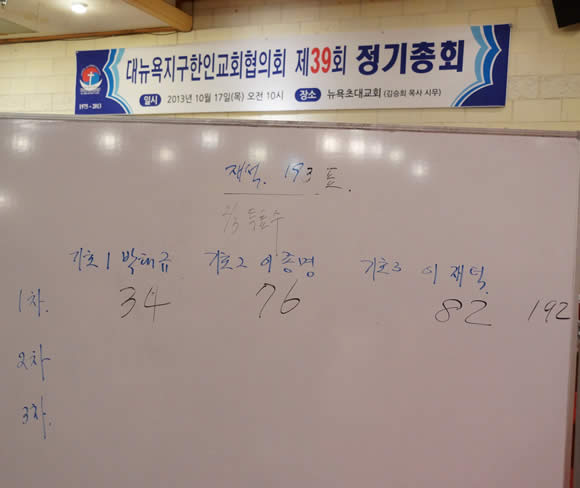 대뉴욕지구한인교회협의회 제39회 정기총회
1975 - 2013
일시 2013년 10월 17일(목) 오전 10시 장소 뉴욕초대교회 (김승희 목사 시무)
재석. 193 표.
2/3 득표수
기호1 박태규 기호2 이종명 기호3 이재덕
1차. 34 76 82 192
2차
3차.